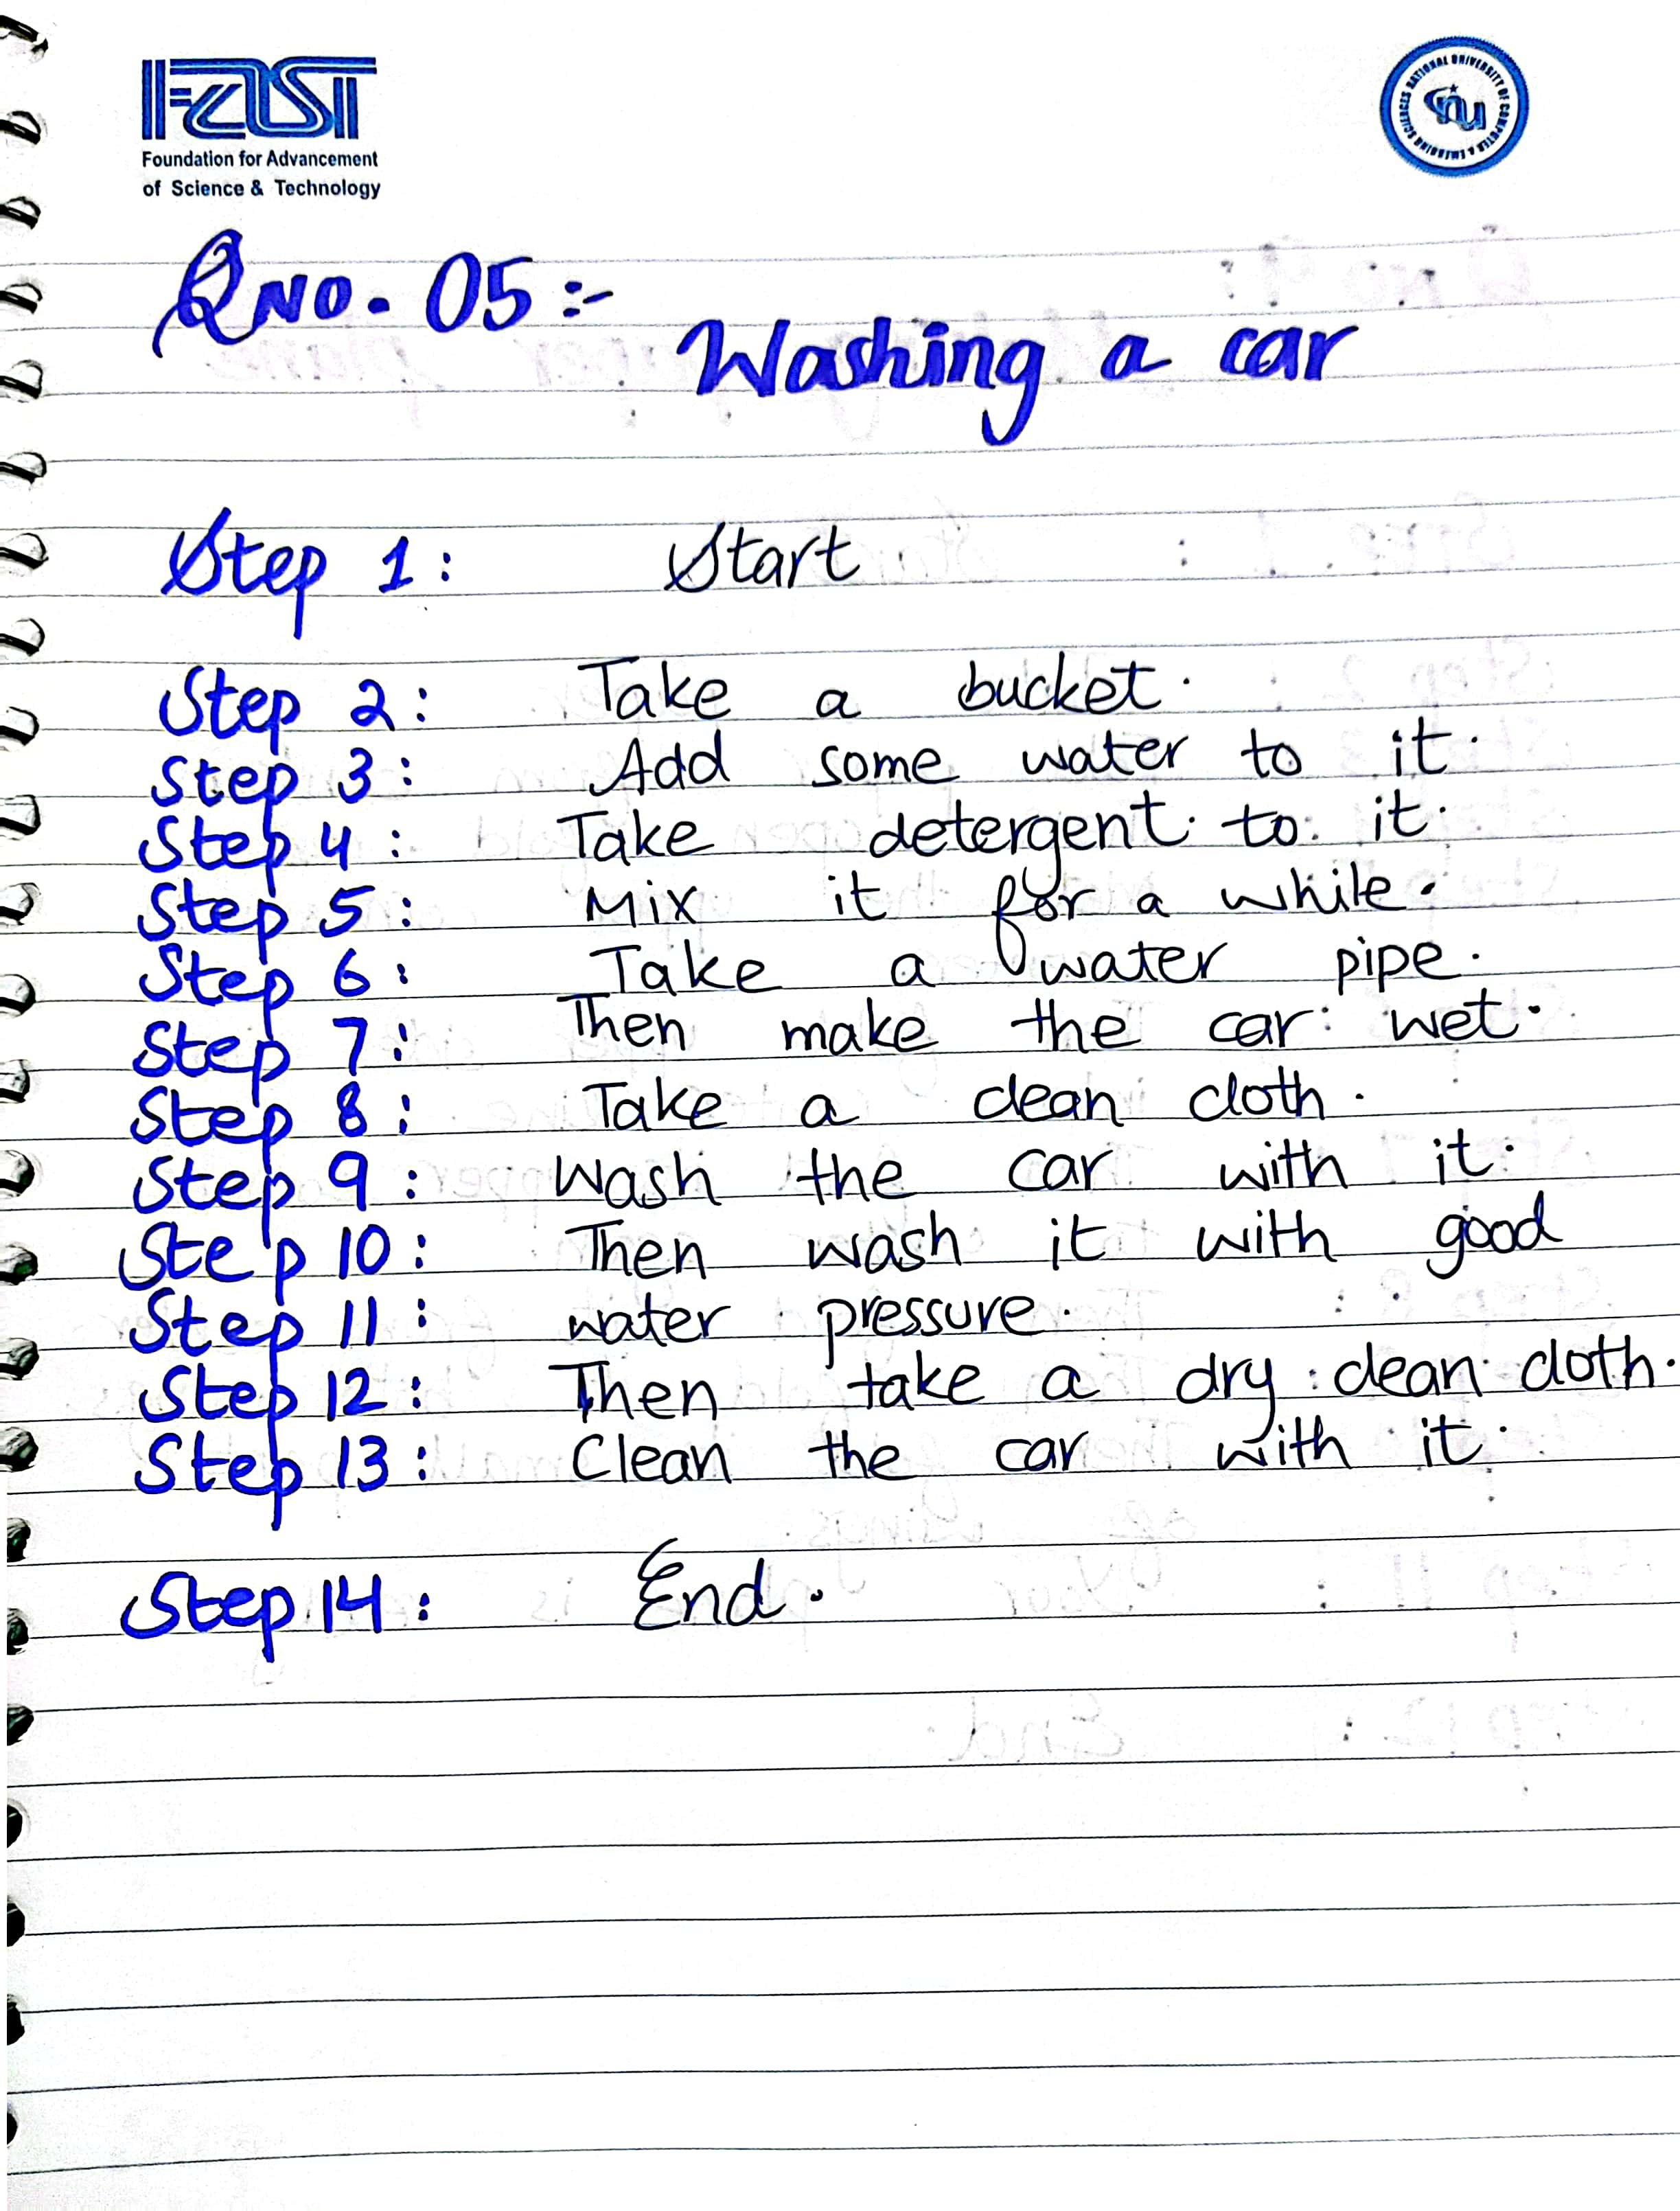 FAST
Foundation for Advancement
of Science & Technology
NATIONAL UNIVERSITY OF COMPUTER & EMERGING SCIENCES
nu
QNO. 05:-
Washing a car
Step 1: Start
Step 2: Take a bucket.
Step 3: Add some water to it.
Step 4: Take detergent to it.
Step 5: Mix it for a while.
Step 6: Take a water pipe.
Step 7: Then make the car wet.
Step 8: Take a clean cloth.
Step 9: Wash the car with it.
Step 10: Then wash it with good
Step 11: water pressure.
Step 12: Then take a dry clean cloth.
Step 13: Clean the car with it.
Step 14: End.